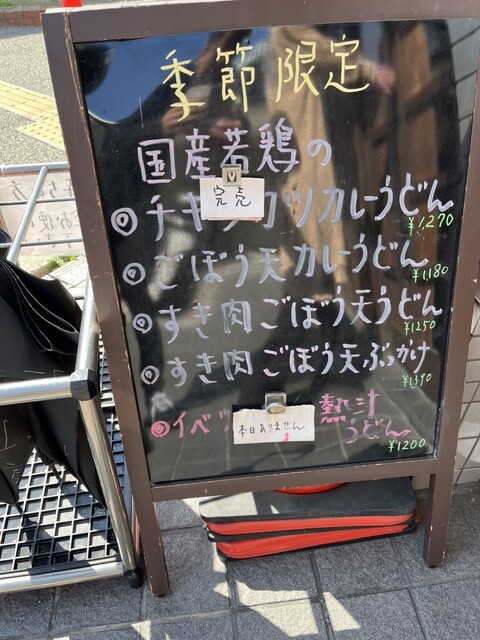 季節限定
国産若鶏の
完売
◎チキンカツカレーうどん
¥1,270
◎ごぼう天カレーうどん
¥1,180
◎すき肉ごぼう天うどん
¥1250
◎すき肉ごぼう天ぶっかけ
¥1390
◎イベリ 熱汁
うどん
本日ありません
¥1200